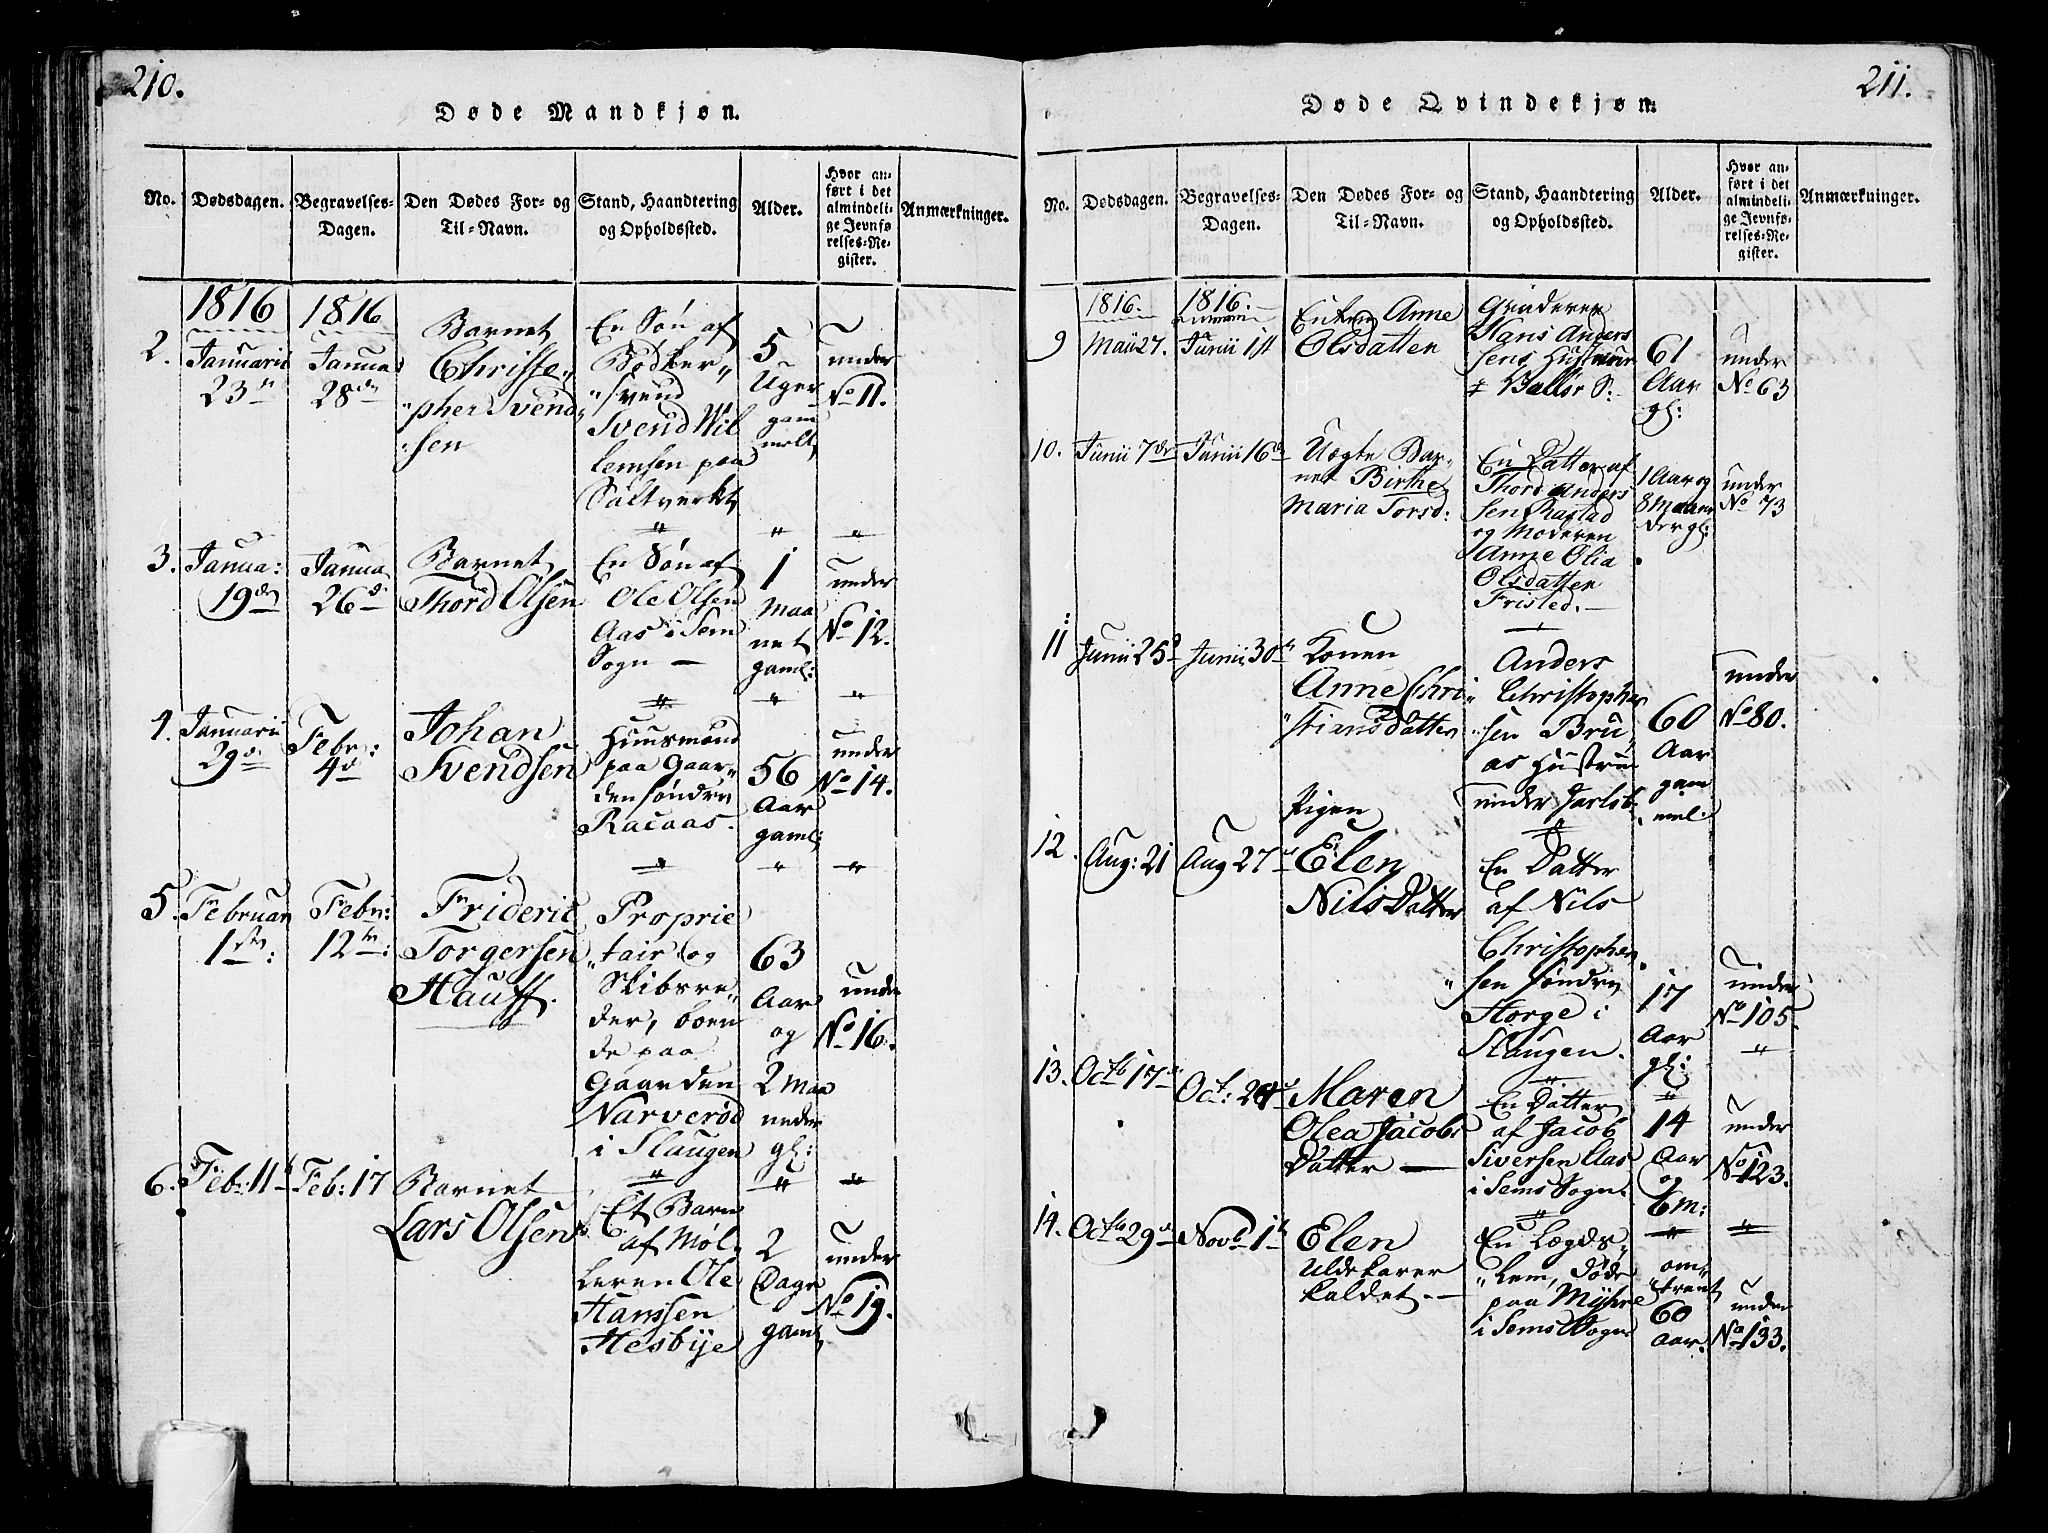 210.
Døde Mandkjøn.
No.
Dødsdagen.
Begravelses-
Dagen.
Den Dødes For- og
Til-Navn.
Stand, Haandtering
og Opholdssted.
Alder.
Hvor an-
ført i det
almindeli-
ge Jevnfø-
relses-Re-
gister.
Anmærkninger.
1816
1816
2.
Januarii
23
Janua
28
Barnet
Christo„
„pher Svend„
sen
En Søn af
Bødker„
„svend
Svend Wil
lemsen paa
Saltverket
5
Uger
gam
melt
under
No 11.
3.
Janua:
19
Janua
26
Barnet
Thord Olsen
En Søn af
Ole Olsen
Aas i Sem
Sogn —
1
Maa
net
gaml:
under
No 12.
4.
Januarii
29
Febr:
4
Johan
Svendsen
Huusmand
paa Gaar„
den søndre
Racaas.
56
Aar
gaml:
under
No 14.
5.
Februar
1
Febr:
12
Frideric
Torgersen
Hauff.
Proprie
„tair og
Skibsre„
der, boen
de paa
Gaarden
Narverød
i Slaugen
63
Aar
og
2 Maa
neder
gl:
under
No 16.
6.
Feb: 11
Feb: 17
Barnet
Lars Olsen
Et Barn
af Møl„
leren Ole
Hanssen
Hesbye
2
Dage
gaml
under
No 19.
211.
Døde Qvindekjøn.
No.
Dødsdagen.
Begravelses-
Dagen.
Den Dødes For- og
Til-Navn.
Stand, Haandtering
og Opholdssted.
Alder.
Hvor an-
ført i det
almindeli-
ge Jevnfø-
relses-Re-
gister.
Anmærkninger.
1816.
1816.
9
Maii 27.
Junii 1st
Enken Anne
Olsdatter
Hans Anders
sens Hustrue
61
Aar
gl:
under
No 63
10.
Junii 7de
Junii 16
Uægte Bar„
net Birthe
Maria Torsd:
En Datter af
Thord Anders
sen Rastad
og Moderen
Anne Olia
Olsdatter
Fristed. —
1 Aar og
8 Maane
der gl:
under
No 73
11
Junii 25
Junii 30
Konen
Anne Chri„
„stiansdatter
Anders
Christopher
„sen Bru,
as Hustru
under Jarlsb.
60
Aar
gam
mel:
under
No 80.
12.
Aug: 21
Aug 27
Pigen
Elen
Nils Datter
En Datter
af Nils
Christopher
„sen Søndre
Horge i
Slaugen.
17
Aar
gl:
under
No 105.
13.
Octb 17
Oct: 24
Maren
Olea Jacobs
Datter —
En Datter
af Jacob
Siversen Aas
i Sems Sogn
14
Aar
og
6 M:
under
No 123.
14.
Octb 29
Novb 1
Elen
Uldekarer
kaldet. —
En Lægds„
„Lem, døde
paa Myhre
i Sems Sogn
om„
„trent
60
Aar.
under
No 133.